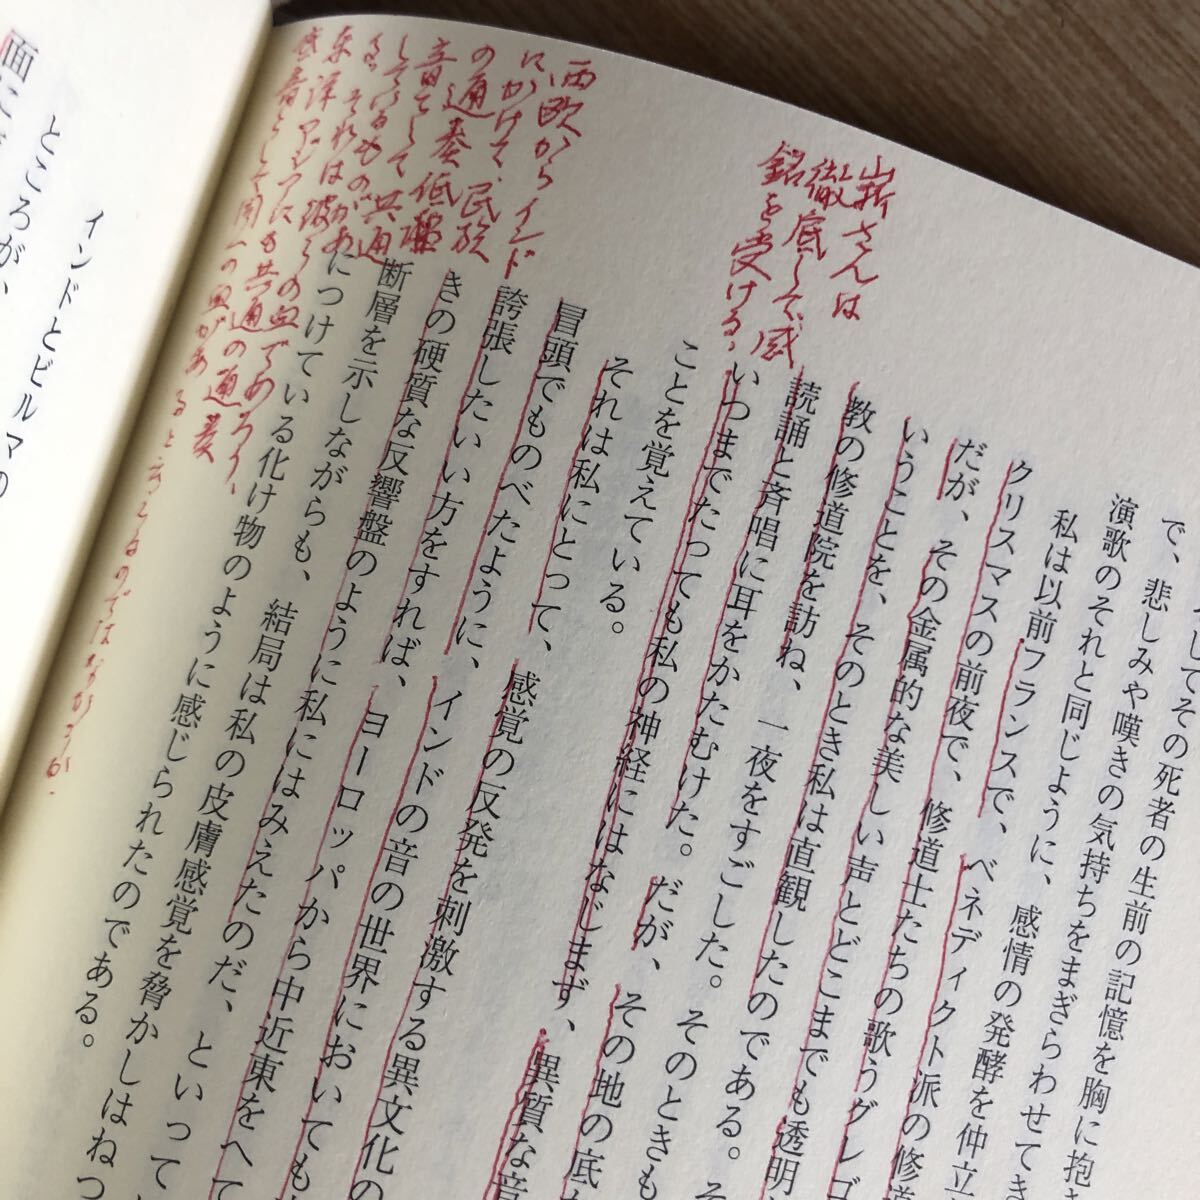 してその死者の生前の記憶を胸に抱
で、悲しみや嘆きの気持ちをまぎらわせてき
演歌のそれと同じように、感情の発酵を仲立
私は以前フランスで、ベネディクト派の修道
クリスマスの前夜で、修道士たちの歌うグレゴ
だが、その金属的な美しい声とどこまでも透明
いうことを、そのとき私は直観したのである。そ
教の修道院を訪ね、一夜をすごした。そのときも
読誦と斉唱に耳をかたむけた。だが、その地の底
いつまでたっても私の神経にはなじまず、異質な音
ことを覚えている。
それは私にとって、感覚の反発を刺激する異文化の
冒頭でものべたように、インドの音の世界においても
誇張したいい方をすれば、ヨーロッパから中近東をへて
きの硬質な反響盤のように私にはみえたのだ、といって
断層を示しながらも、結局は私の皮膚感覚を脅かしはねつ
につけている化け物のように感じられたのである。
山折さんは
徹底して、感
銘を受ける。
西欧からインド
にかけて、民族
の通奏低
音として共
しているもの
それは彼らの血であろう、
東洋アジアにも共通の通奏
として同一の血がある
インドとビルマの
ところが、
面に